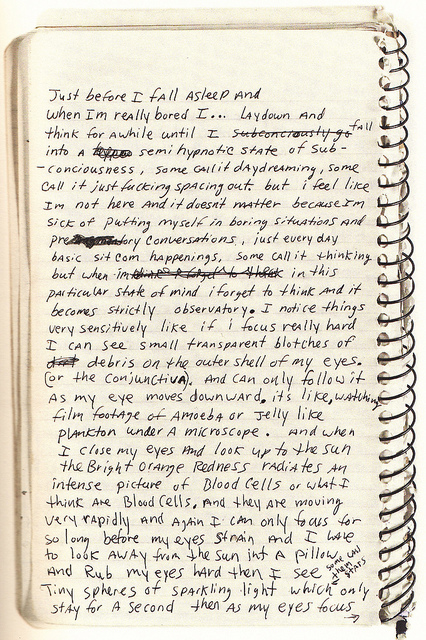 Just before I fall Asleep And
when Im really bored I... Laydown And
think for awhile until I subconciously go fall
into A hypno semi hypnotic state of sub-
-conciousness, some call it daydreaming, some
call it just fucking spacing out but i feel like
Im not here And it doesnt matter because Im
sick of putting myself in boring situations And
prematory conversations, just every day
basic sitcom happenings, some call it thinking
but when im in this
particular state of mind i forget to think And it
becomes strictly observatory. I notice things
very sensitively like if i focus really hard
I can see small transparent blotches of
debris on the outer shell of my eyes.
(or the conjunctiva). And can only follow it
As my eye moves downward, it's like, watching
film footage of Amoeba or Jelly like
plankton under A microscope. And when
I close my eyes And look up to the sun
the Bright orange Redness radiates An
intense picture of Blood Cells or what I
think Are Blood Cells. And they are moving
very rapidly And Again I can only focus for
so long before my eyes strain and I have
to look Away from the sun int A pillow
And Rub my eyes hard then I see some call them stars
Tiny spheres of sparkling light which only
stay for A second then As my eyes focus →